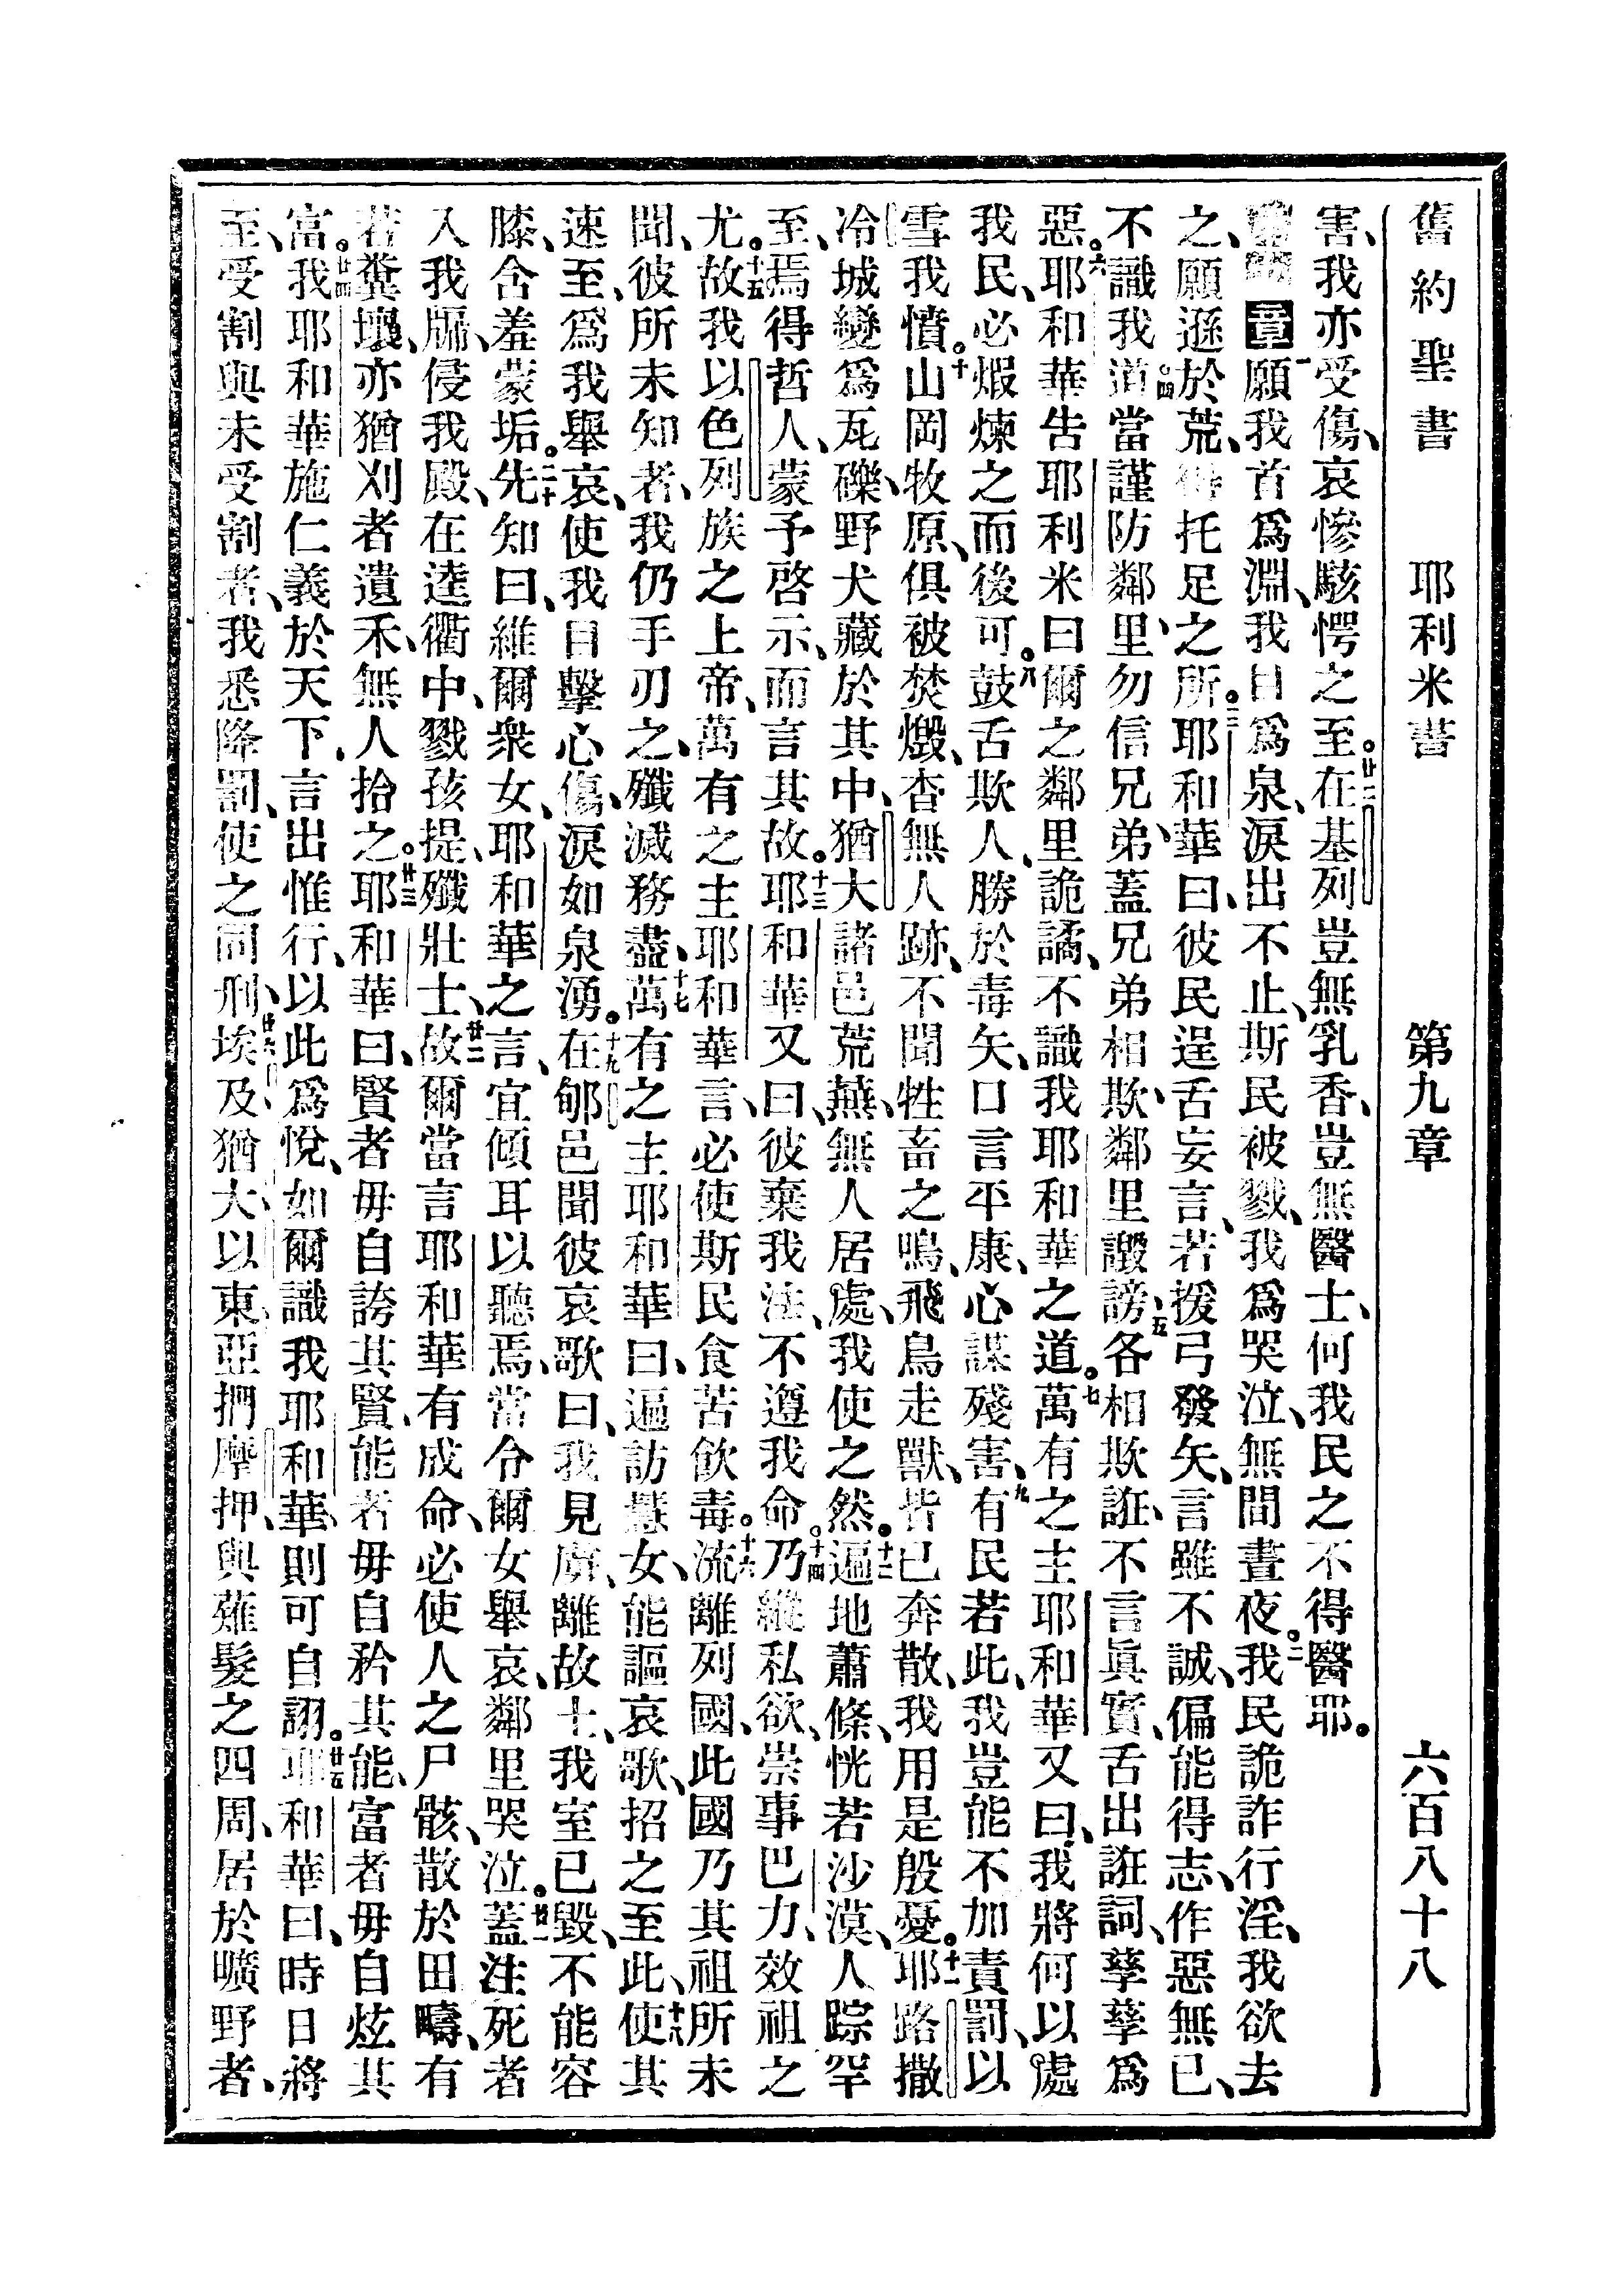 舊約聖書　耶利米書　第九章　六百八十八
害、我亦受傷、哀慘駭愕之至。廿二在基列豈無乳香、豈無醫士、何我民之不得醫耶。
章一願我首爲淵、我目爲泉、淚出不止、斯民被戮、我爲哭泣、無間晝夜。二我民詭詐行淫、我欲去
之、願遜於荒、得托足之所。三耶和華曰、彼民逞舌妄言、若援弓發矢、言雖不誠、偏能得志、作惡無已、
不識我道。四當謹防鄰里、勿信兄弟、蓋兄弟相欺、鄰里譭謗、五各相欺誑、不言眞實、舌出誑詞、孳孳爲
惡。六耶和華告耶利米曰爾之鄰里詭譎、不識我耶和華之道。七萬有之主耶和華又曰、我將何以處
我民、必煆煉之而後可。八鼓舌欺人、勝於毒矢、口言平康、心謀殘害、九有民若此、我豈能不加責罰、以
雪我憤。十山岡牧原、俱被焚燬、杳無人跡、不聞牲畜之鳴、飛鳥走獸、皆已奔散、我用是殷憂。十一耶路撒
冷城變爲瓦礫、野犬藏於其中、猶大諸邑荒蕪、無人居處、我使之然。十二遍地蕭條、恍若沙漠、人踪罕
至、焉得哲人、蒙予啓示、而言其故。十三耶和華又曰、彼棄我法、不遵我命。十四乃縱私欲、崇事巴力、效祖之
尤。十五故我以色列族之上帝、萬有之主耶和華言、必使斯民食苦飲毒。十六流離列國、此國乃其祖所未
聞、彼所未知者、我仍手刃之、殲滅務盡、十七萬有之主耶和華曰、遍訪慧女、能謳哀歌、招之至此、十八使其
速至、爲我舉哀、使我目擊心傷、淚如泉湧。十九在郇邑聞彼哀歌曰、我見虜、離故土、我室已毀、不能容
膝、含羞蒙垢。二十先知曰、維爾衆女、耶和華之言、宜傾耳以聽焉、當令爾女舉哀、鄰里哭泣。廿一蓋法死者
入我牖、侵我殿、在逵衢中、戮孩提、殲壯士、廿二故爾當言耶和華有成命、必使人之尸骸、散於田疇、有
若糞壤、亦猶刈者遺禾、無人拾之。廿三耶和華曰、賢者毋自誇其賢、能者毋自矜其能、富者毋自炫其
富。廿四我耶和華施仁義於天下、言出惟行、以此爲悅、如爾識我耶和華、則可自詡。廿五耶和華曰、時日將
至、受割與未受割者、我悉降罰、使之同刑、廿六埃及、猶大、以東、亞捫、摩押、與薙髮之四周、居於曠野者、